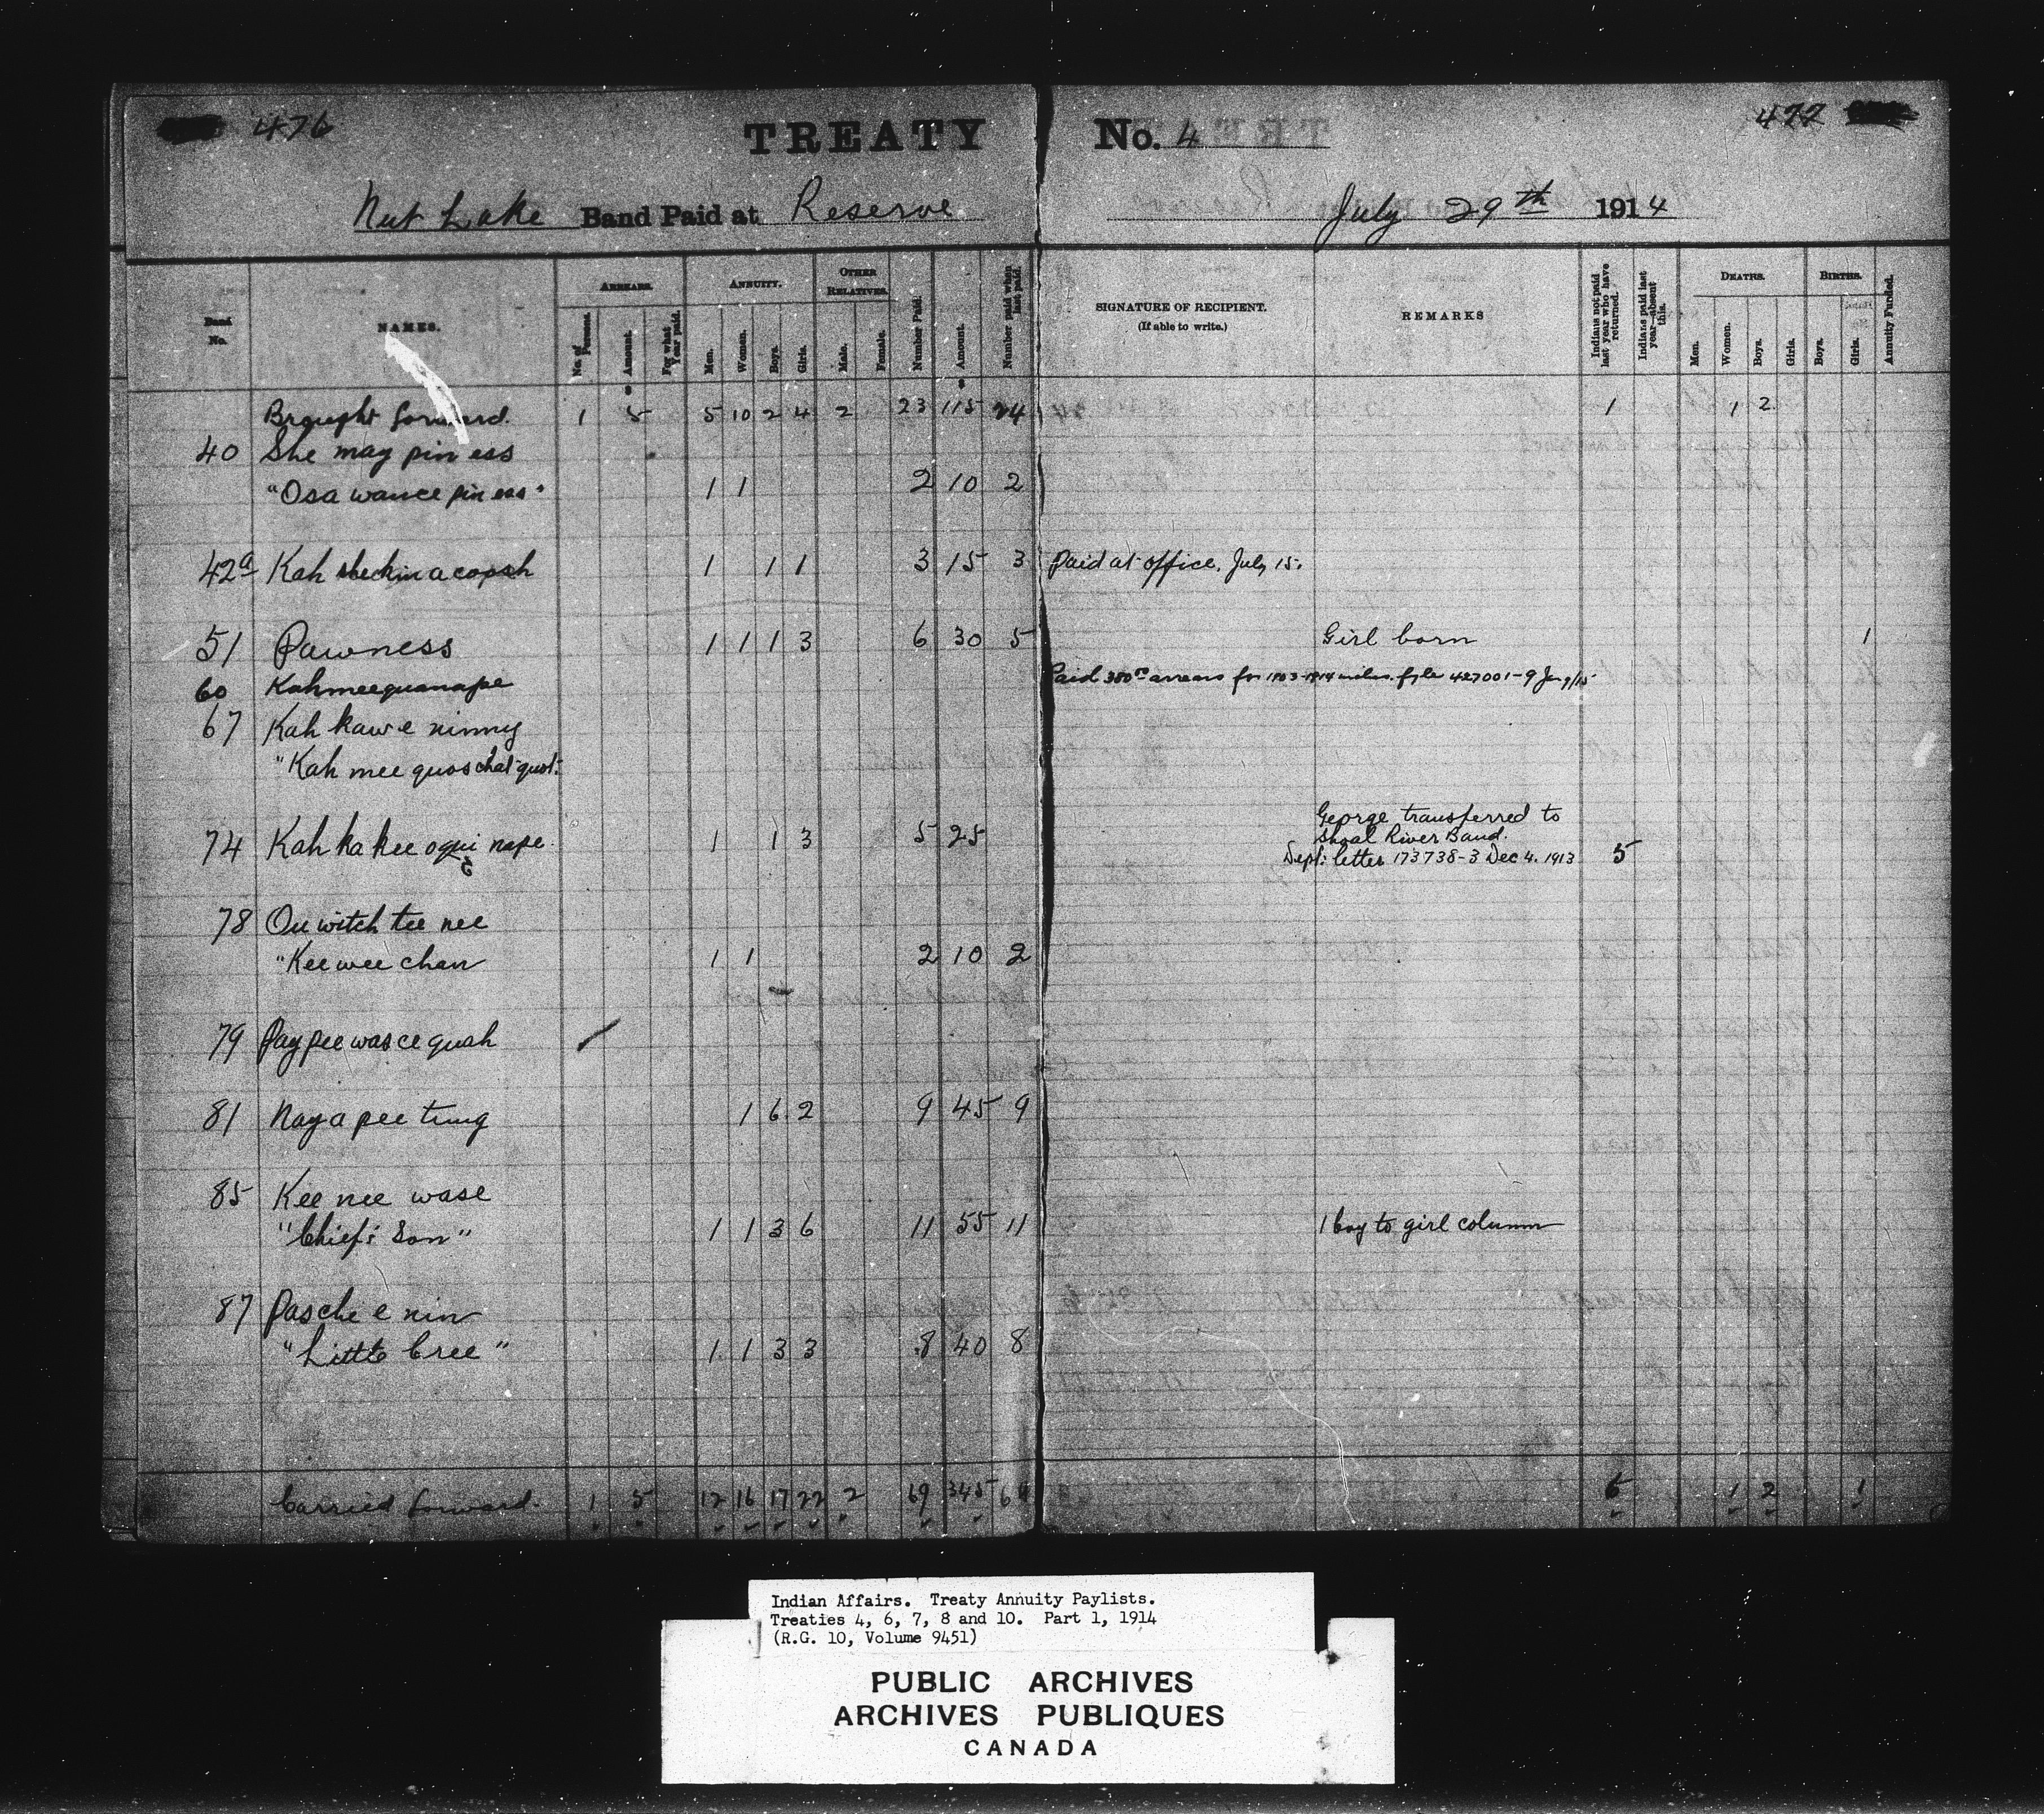 476
477
TREATY No. 4
Nut Lake Band Paid at Reserve July 29th 1914
Band No.
NAMES.
ARREARS.
No. of Persons.
Amount.
For what Year paid.
ANNUITY.
Men.
Women.
Boys.
Girls.
OTHER RELATIVES.
Male.
Female.
Number Paid.
Amount.
Number paid when last paid.
SIGNATURE OF RECIPIENT.
(If able to write.)
REMARKS
Indians not paid last year who have returned.
Indians paid last year—absent this.
DEATHS.
Men.
Women.
Boys.
Girls.
BIRTHS.
Boys.
Girls.
Annuity Funded.
Brought forward. 1 5 5 10 2 4 2 23 115 24 1 1 2
40 She may pin ess
"Osa wance pin ess" 1 1 2 10 2
42a Kah sheckinacoosh 1 1 1 3 15 3 Paid at office, July 15.
51 Pawness 1 1 1 3 6 30 5 Girl born 1
60 Kahmeequanape Paid 380 arrears for 1903-1914 file 427001-9 Jan 9/15
67 Kah kaw e ninny
"Kah mee quos chat quot."
George transferred to
Shoal River Band.
74 Kah ka kee oqui nape 1 1 3 5 25 Dept: letter 173738-3 Dec 4. 1913 5
78 Ou witch tee nee
"Kee wee chan 1 1 2 10 2
79 Pay pee wasce quah
81 Nay a pee tung 1 6 2 9 45 9
85 Kee nee wase
"Chief's Son" 1 1 3 6 11 55 11 1 boy to girl column
87 Pasche e nin
"Little Cree" 1 1 3 3 8 40 8
Carried forward. 1 5 12 16 17 22 2 69 345 64 6 1 2 1
Indian Affairs. Treaty Annuity Paylists.
Treaties 4, 6, 7, 8 and 10. Part 1, 1914
(R.G. 10, Volume 9451)
PUBLIC ARCHIVES
ARCHIVES PUBLIQUES
CANADA